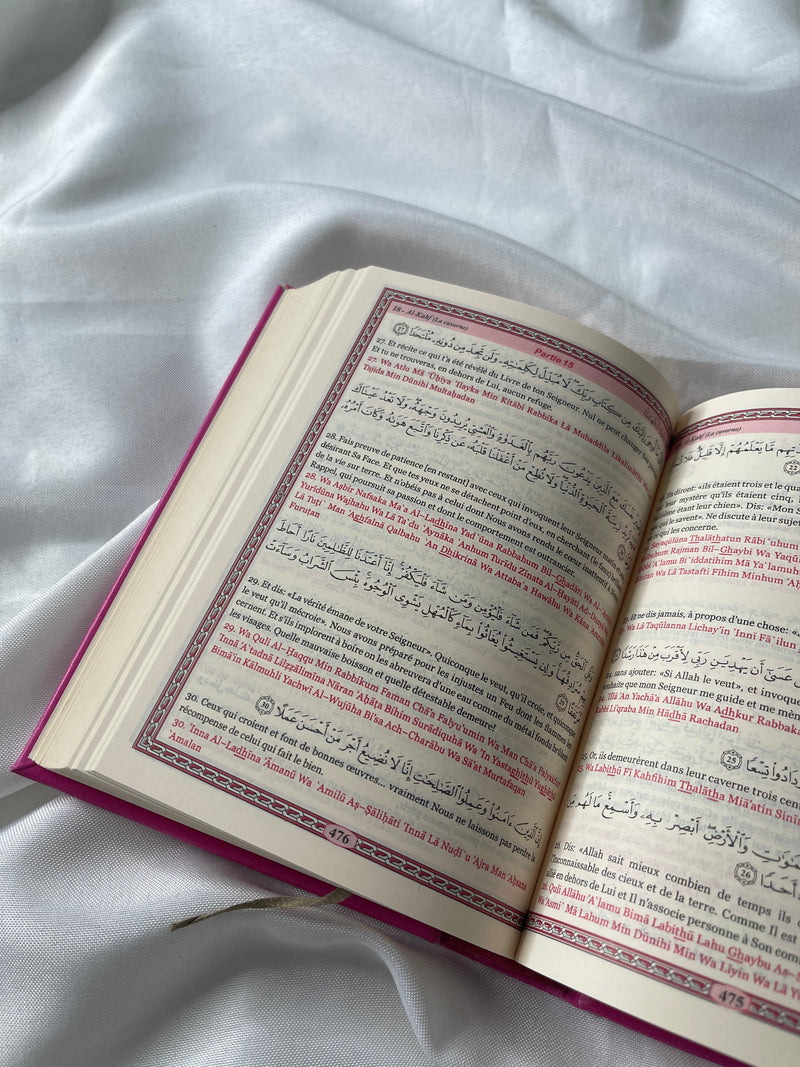 18- Al-Kahf (La caverne)
Partie 15
أُوحِيَ إِلَيْكَ مِن كِتَابِ رَبِّكَ لَا مُبَدِّلَ لِكَلِمَاتِهِ وَلَن تَجِدَ مِن دُونِهِ مُلْتَحَدًا 27
27. Et récite ce qui t'a été révélé du Livre de ton Seigneur. Nul ne peut changer Ses
Et tu ne trouveras, en dehors de Lui, aucun refuge.
27. Wa Atlu Mā 'Ūĥiya 'Ilayka Min Kitābi Rabbika Lā Mubaddila Likalimātihi
Tajida Min Dūnihi Multaĥadan
مَعَ الَّذِينَ يَدْعُونَ رَبَّهُم بِالْغَدَاةِ وَالْعَشِيِّ يُرِيدُونَ وَجْهَهُ وَلَا تَعْدُ عَيْنَاكَ
زِينَةَ الْحَيَاةِ الدُّنْيَا وَلَا تُطِعْ مَنْ أَغْفَلْنَا قَلْبَهُ عَن ذِكْرِنَا وَاتَّبَعَ هَوَاهُ وَكَانَ أَمْرُهُ
28. Fais preuve de patience [en restant] avec ceux qui invoquent leur Seigneur matin
désirant Sa Face. Et que tes yeux ne se détachent point d'eux, en cherchant (le faux)
de la vie sur terre. Et n'obéis pas à celui dont Nous avons rendu le cœur inattentif à
Rappel, qui poursuit sa passion et dont le comportement est outrancier.
28. Wa Aşbir Nafsaka Ma'a Al-Ladhīna Yad'ūna Rabbahum Bil-Ghadāati Wa Al-
Yurīdūna Wajhahu Wa Lā Ta'du 'Aynāka 'Anhum Turīdu Zīnata Al-Ĥayāati Ad-
Lā Tuţi' Man 'Aghfalnā Qalbahu 'An Dhikrinā Wa Attaba'a Hawāhu Wa Kāna
Furuţan
وَقُلِ الْحَقُّ مِن رَّبِّكُمْ فَمَن شَاءَ فَلْيُؤْمِن وَمَن شَاءَ فَلْيَكْفُرْ إِنَّا أَعْتَدْنَا لِلظَّالِمِينَ نَارًا أَحَاطَ
سُرَادِقُهَا وَإِن يَسْتَغِيثُوا يُغَاثُوا بِمَاءٍ كَالْمُهْلِ يَشْوِي الْوُجُوهَ بِئْسَ الشَّرَابُ وَسَاءَتْ
29
29. Et dis: «La vérité émane de votre Seigneur». Quiconque le veut, qu'il croie, et quiconque
le veut qu'il mécroie». Nous avons préparé pour les injustes un Feu dont les flammes les
cernent. Et s'ils implorent à boire on les abreuvera d'une eau comme du métal fondu brûlant
les visages. Quelle mauvaise boisson et quelle détestable demeure!
29. Wa Quli Al-Ĥaqqu Min Rabbikum Faman Chā'a Falyu'umin Wa Man Chā'a Falyakfur
'Innā 'A'tadnā Lilžžālimīna Nāran 'Aĥāţa Bihim Surādiquhā Wa 'In Yastaghīthū Yughāthū
Bimā'in Kālmuhli Yachwī Al-Wujūha Bi'sa Ach-Charābu Wa Sā'at Murtafaqan
إِنَّ الَّذِينَ ءَامَنُوا وَعَمِلُوا الصَّالِحَاتِ إِنَّا لَا نُضِيعُ أَجْرَ مَنْ أَحْسَنَ عَمَلًا 30
30. Ceux qui croient et font de bonnes œuvres... vraiment Nous ne laissons pas perdre la
récompense de celui qui fait le bien.
30. 'Inna Al-Ladhīna 'Āmanū Wa 'Amilū Aş-Şāliĥāti 'Innā Lā Nuđī'u 'Ajra Man 'Aĥsana
'Amalan
476
Al-Kahf (La caverne)
مَّا يَعْلَمُهُمْ إِلَّا قَلِيلٌ فَلَا
22
diront: «ils étaient trois et le
leur mystère qu'ils étaient cinq,
étant leur chien». Dis: «Mon
qui le savent». Ne discute à leur sujet
qui les concerne.
Thalāthatun Rābi'uhum
Rajman Bil-Ghaybi Wa
'A'lamu Bi'iddatihim Mā Ya'lamuhum
Wa Lā Tastafti Fīhim Minhum
Et ne dis jamais, à propos d'une chose:
Wa Lā Taqūlanna Lichay'in 'Innī Fā'ilun
عَسَىٰ أَن يَهْدِيَنِ رَبِّي لِأَقْرَبَ مِنْ هَٰذَا رَشَدًا
24. sans ajouter: «Si Allah le veut», et invoque
souhaite que mon Seigneur me guide et me
'Illā 'An Yachā'a Allāhu Wa Adhkur Rabbaka
Rabbī Li'qraba Min Hādhā Rachadan
وَازْدَادُوا تِسْعًا 25
25. Or, ils demeurèrent dans leur caverne trois cents
25. Wa Labithū Fī Kahfihim Thalātha Miā'atin Sinīna
السَّمَاوَاتِ وَالْأَرْضِ أَبْصِرْ بِهِ وَأَسْمِعْ مَا لَهُم مِّن
أَحَدًا 26
26. Dis: «Allah sait mieux combien de temps ils
l'Inconnaissable des cieux et de la terre. Comme Il est
allié en dehors de Lui et Il n'associe personne à Son
26. Quli Allāhu 'A'lamu Bimā Labithū Lahu Ghaybu As-
Wa 'Asmi' Mā Lahum Min Dūnihi Min Wa Līyin Wa Lā
475